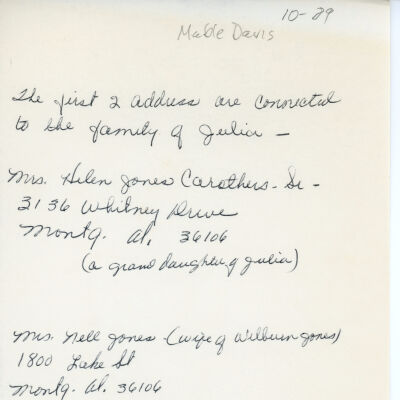 10-89
Mable Davis
The first 2 address are connected
to the family of Julia —
Mrs. Helen Jones Carothers - Sr -
3136 Whitney Drive
Montg. Al. 36106
(a grand daughter of Julia)
Mrs. Nell Jones - (wife of Wilburn Jones)
1800 Lake St
Montg. Al. 36106